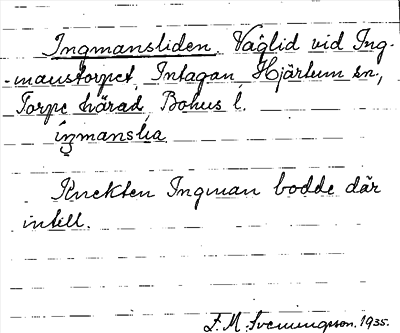 Ingmansliden. Väglid vid Ing-
-manstorpet, Intagan, Hjärtum sn,
Torpe härad, Bohus l.
iŋmanslia
Knekten Ingman bodde där
intill.
F. M. Svenungsson. 1935.